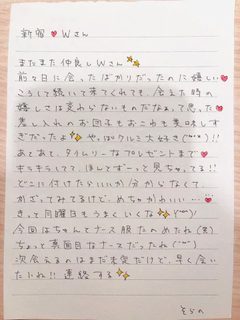 新宿❤Wさん
またまた仲良しWさん✨
前々日に会ったばかりだったのに嬉しい❤
こうして続いて来てくれても、会えた時の
嬉しさは変わらないものだなぁって思った❤
差し入れのお団子もおこわも美味しす
ぎだったよ✨やっぱクルミ大好き(*´ `*)!!
あとあと、タイムリーなプレゼントまで❤
キラキラしてて、ほんとずーっと見ちゃってる!!
どこに付けたらいいか分からなくて、
かざってみてるけど、めちゃかわいい…❤
きっと月曜日もうまくいくな✨
今回はちゃんとナース服だったのたね(笑)
ちょっと裏回目なナースだったね
次会えるのはまだ未定だけど、早く会い
たいね!!連絡する✨